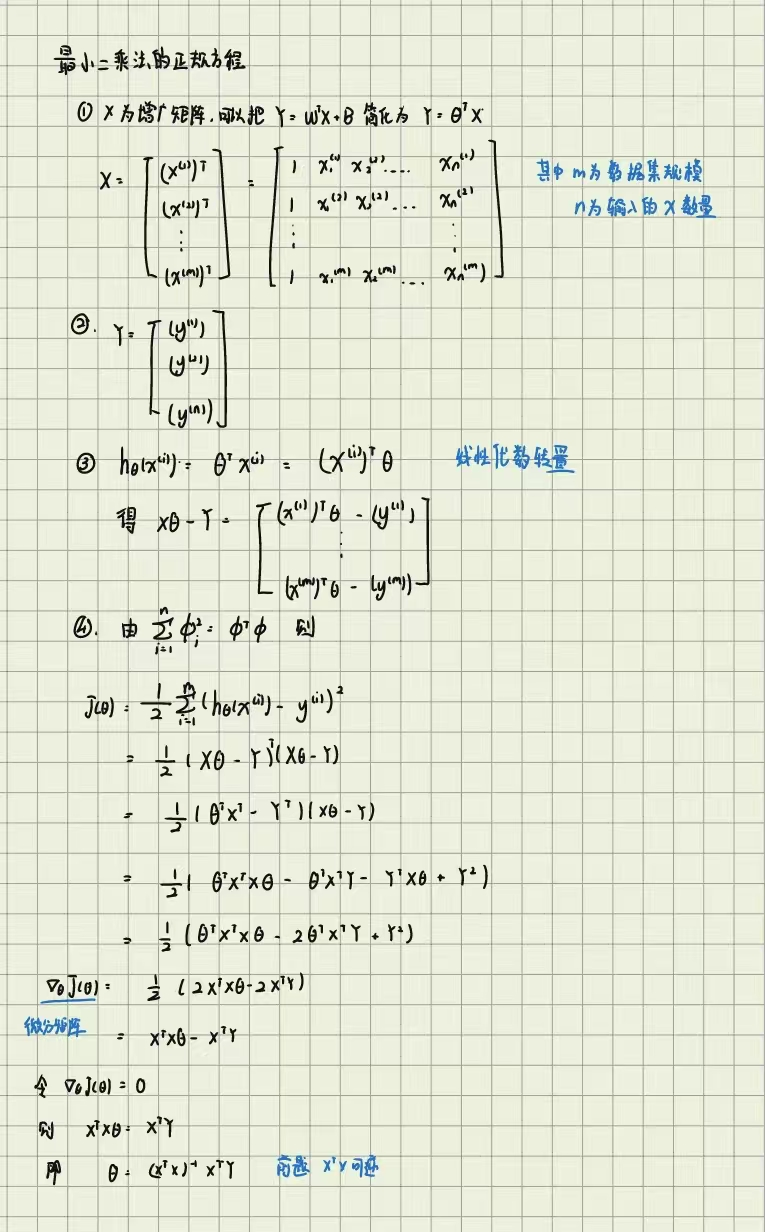 最小二乘法的正规方程
① X为增广矩阵,可以把 Y = WᵀX + B 简化为 Y = θᵀX
X = [(x⁽¹⁾)ᵀ = [1 x₁⁽¹⁾ x₂⁽¹⁾ .... xₙ⁽¹⁾ 其中 m为数据集规模
(x⁽²⁾)ᵀ 1 x₁⁽²⁾ x₂⁽²⁾ ... xₙ⁽²⁾ n为输入的 X 数量
⋮ ⋮ ⋮
(x⁽ᵐ⁾)ᵀ] 1 x₁⁽ᵐ⁾ x₂⁽ᵐ⁾ ... xₙ⁽ᵐ⁾)]
②. Y = [(y⁽¹⁾)
(y⁽²⁾)
(y⁽ⁿ⁾)]
③ hθ(x⁽ⁱ⁾) = θᵀx⁽ⁱ⁾ = (x⁽ⁱ⁾)ᵀθ 线性代数转置
得 Xθ - Y = [(x⁽¹⁾)ᵀθ - (y⁽¹⁾)
⋮
(x⁽ᵐ⁾)ᵀθ - (y⁽ᵐ⁾)]
④. 由 Σᵢ₌₁ⁿ φᵢ² = φᵀφ 则
J(θ) = 1/2 Σᵢ₌₁ᵐ (hθ(x⁽ⁱ⁾) - y⁽ⁱ⁾)²
= 1/2 (Xθ - Y)ᵀ(Xθ - Y)
= 1/2 (θᵀXᵀ - Yᵀ)(Xθ - Y)
= 1/2 (θᵀXᵀXθ - θᵀXᵀY - YᵀXθ + Y²)
= 1/2 (θᵀXᵀXθ - 2θᵀXᵀY + Y²)
∇θJ(θ) = 1/2 (2XᵀXθ - 2XᵀY)
微分矩阵 = XᵀXθ - XᵀY
令 ∇θJ(θ) = 0
则 XᵀXθ = XᵀY
即 θ = (XᵀX)⁻¹XᵀY 前题 XᵀX可逆